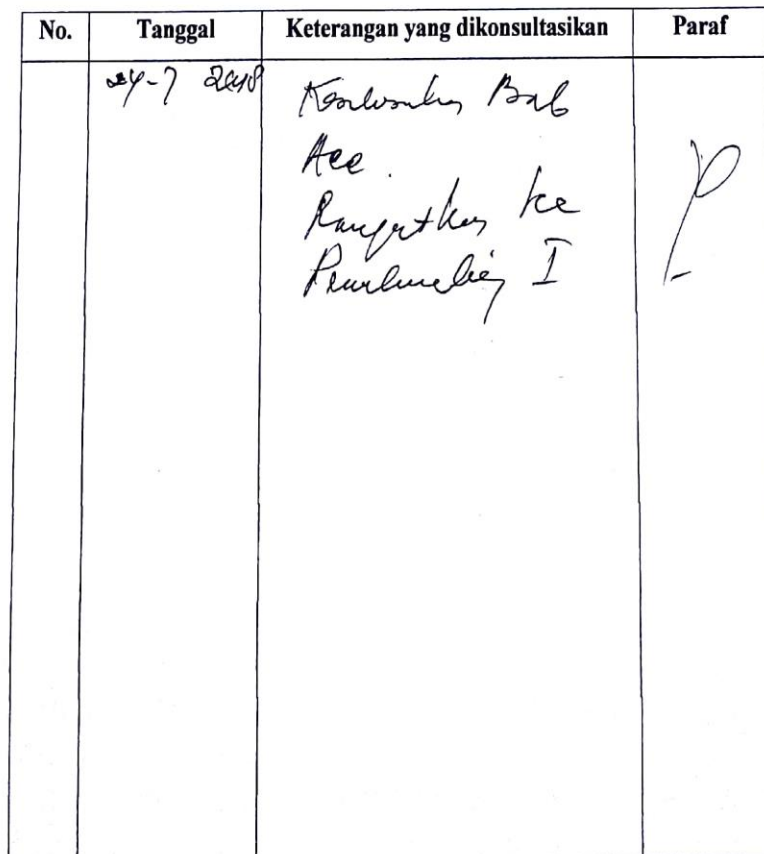 No. Tanggal Keterangan yang dikonsultasikan Paraf
24-7 2018 Konsultasi Bab
Acc.
Lanjutkan ke
Pembimbing I